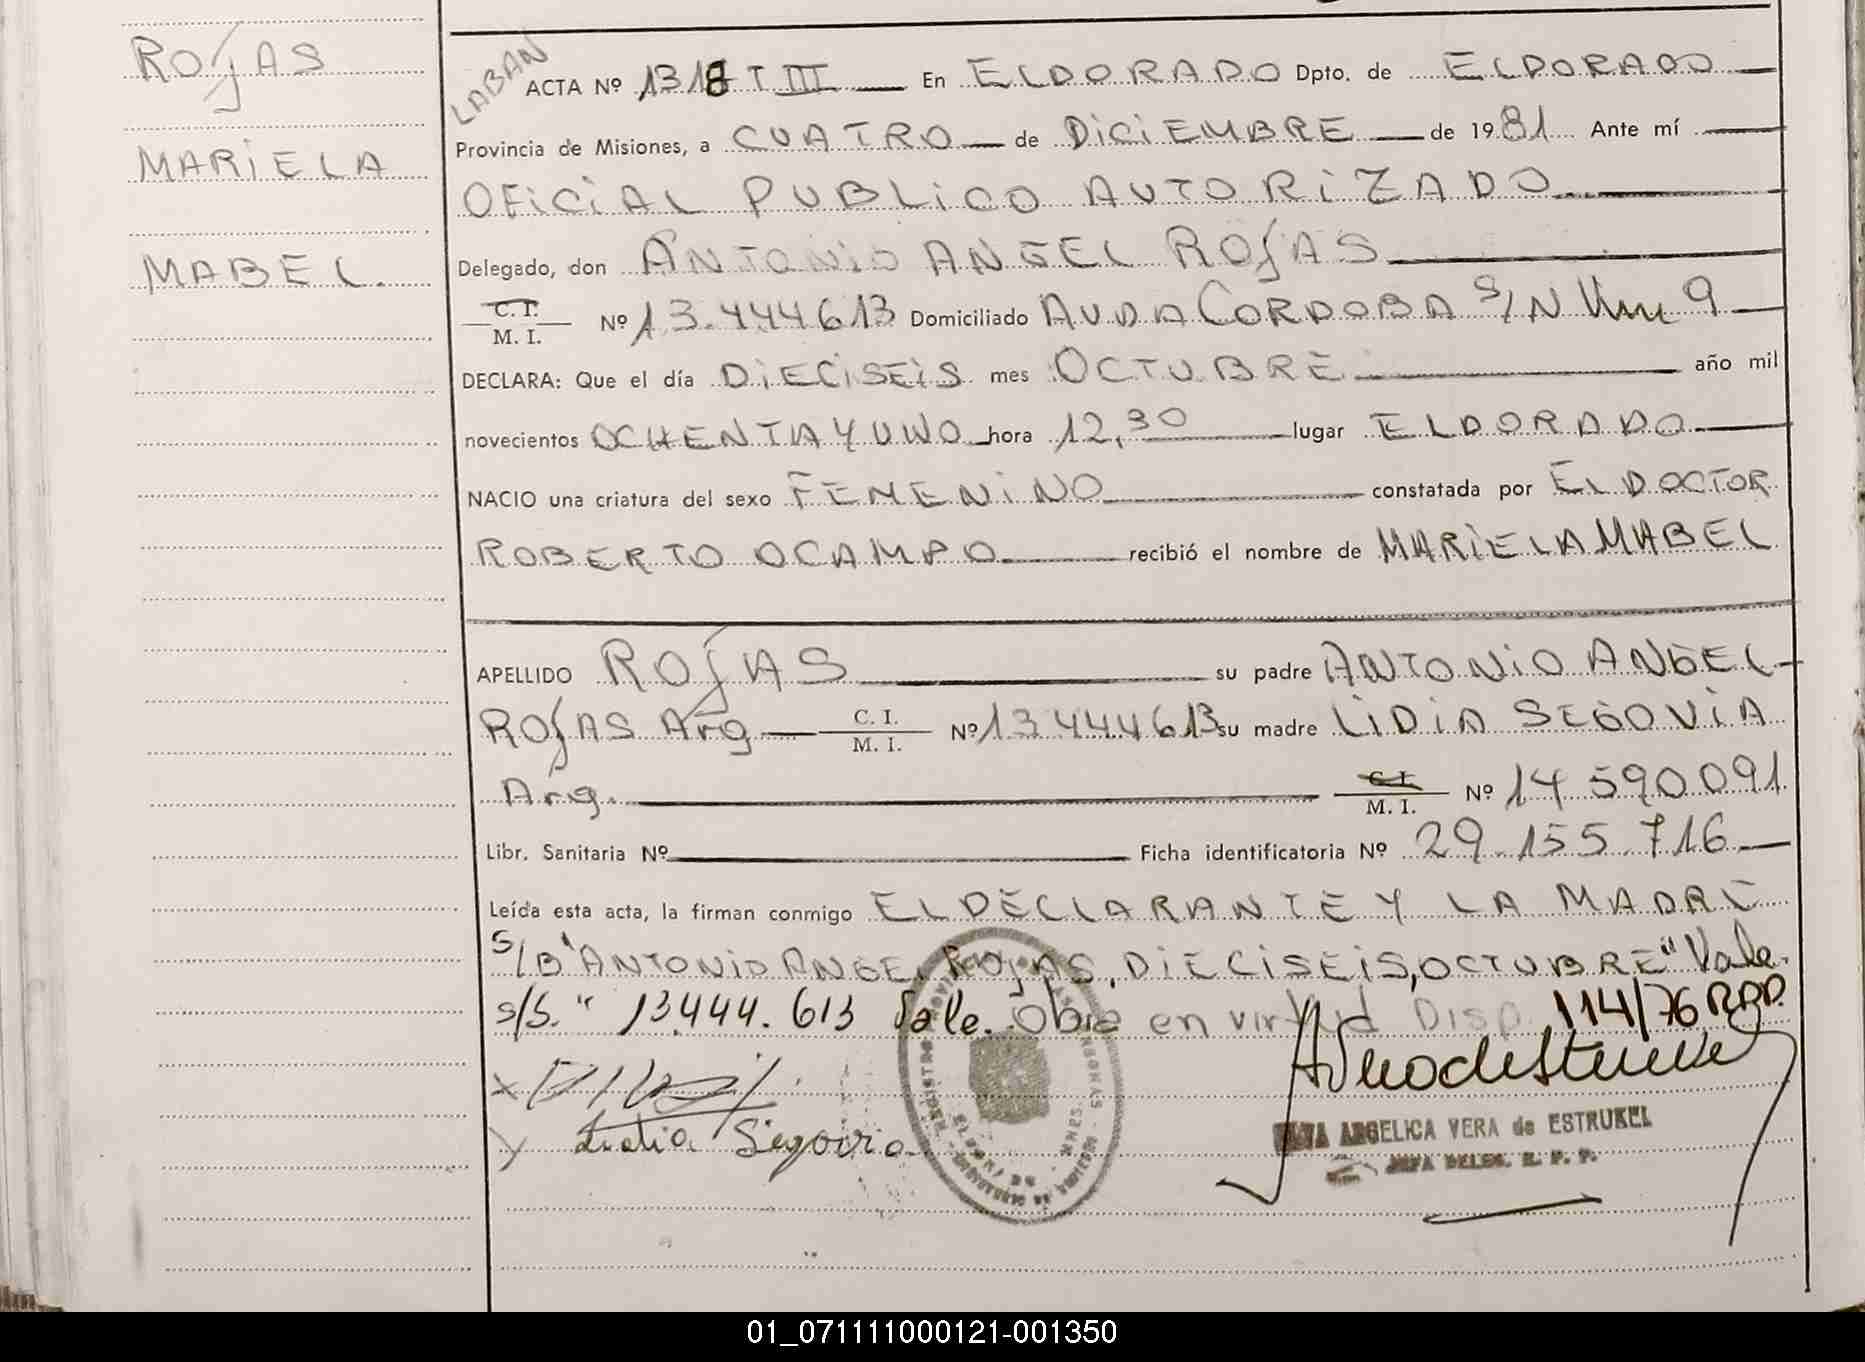 ROJAS
MARIELA
MABEL.
LABAN
ACTA Nº 1318 T III En ELDORADO Dpto. de ELDORADO
Provincia de Misiones, a CUATRO de DICIEMBRE de 1981 Ante mí
OFICIAL PUBLICO AUTORIZADO
Delegado, don ANTONIO ANGEL ROJAS
C. I.
M. I. Nº 13.444613 Domiciliado AVDA CORDOBA S/N Km 9
DECLARA: Que el día DIECISEIS mes OCTUBRE año mil
novecientos OCHENTA Y UNO hora 12,30 lugar ELDORADO
NACIO una criatura del sexo FEMENINO constatada por EL DOCTOR
ROBERTO OCAMPO recibió el nombre de MARIELA MABEL
APELLIDO ROJAS su padre ANTONIO ANGEL
ROJAS Arg C. I. M. I. Nº 13444613 su madre LIDIA SEGOVIA
Arg. C. I. M. I. Nº 14 590091
Libr. Sanitaria Nº Ficha identificatoria Nº 29.155.716
Leída esta acta, la firman conmigo EL DECLARANTE Y LA MADRE
S/B "ANTONIO ANGEL ROJAS, DIECISEIS, OCTUBRE" Vale.
s/S. " 13.444.613 Vale. Obia en virtud Disp. 114/76 RPP.
Lidia Segovia
ANGELICA VERA de ESTRUKEL
JEFA DELEG. R. P. P.
01_071111000121-001350